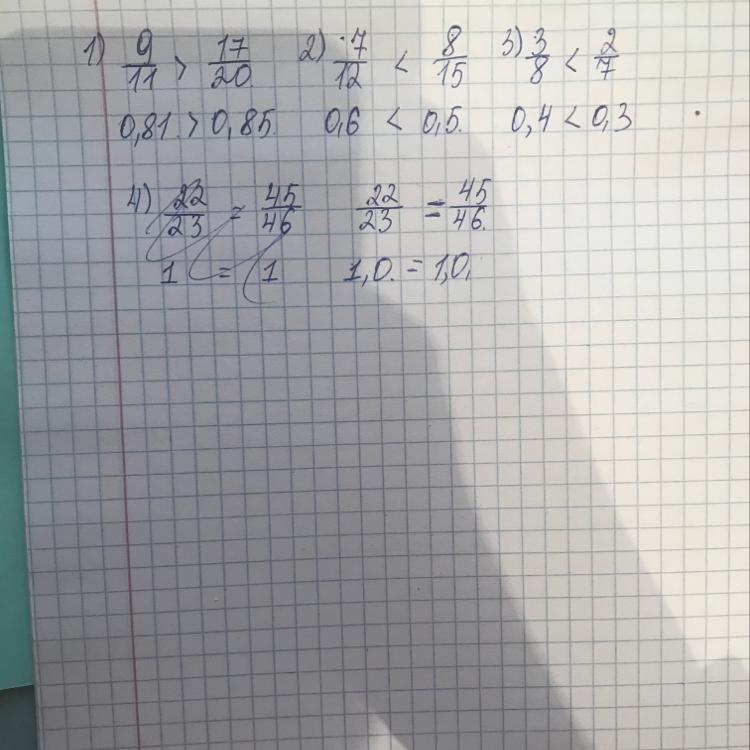 1) 9/11 > 17/20 2) 7/12 < 8/15 3) 3/8 < 2/7
0,81 > 0,85 0,6 < 0,5 0,4 < 0,3
4) 22/23 = 45/46 22/23 = 45/46
1 = 1 1,0 = 1,0